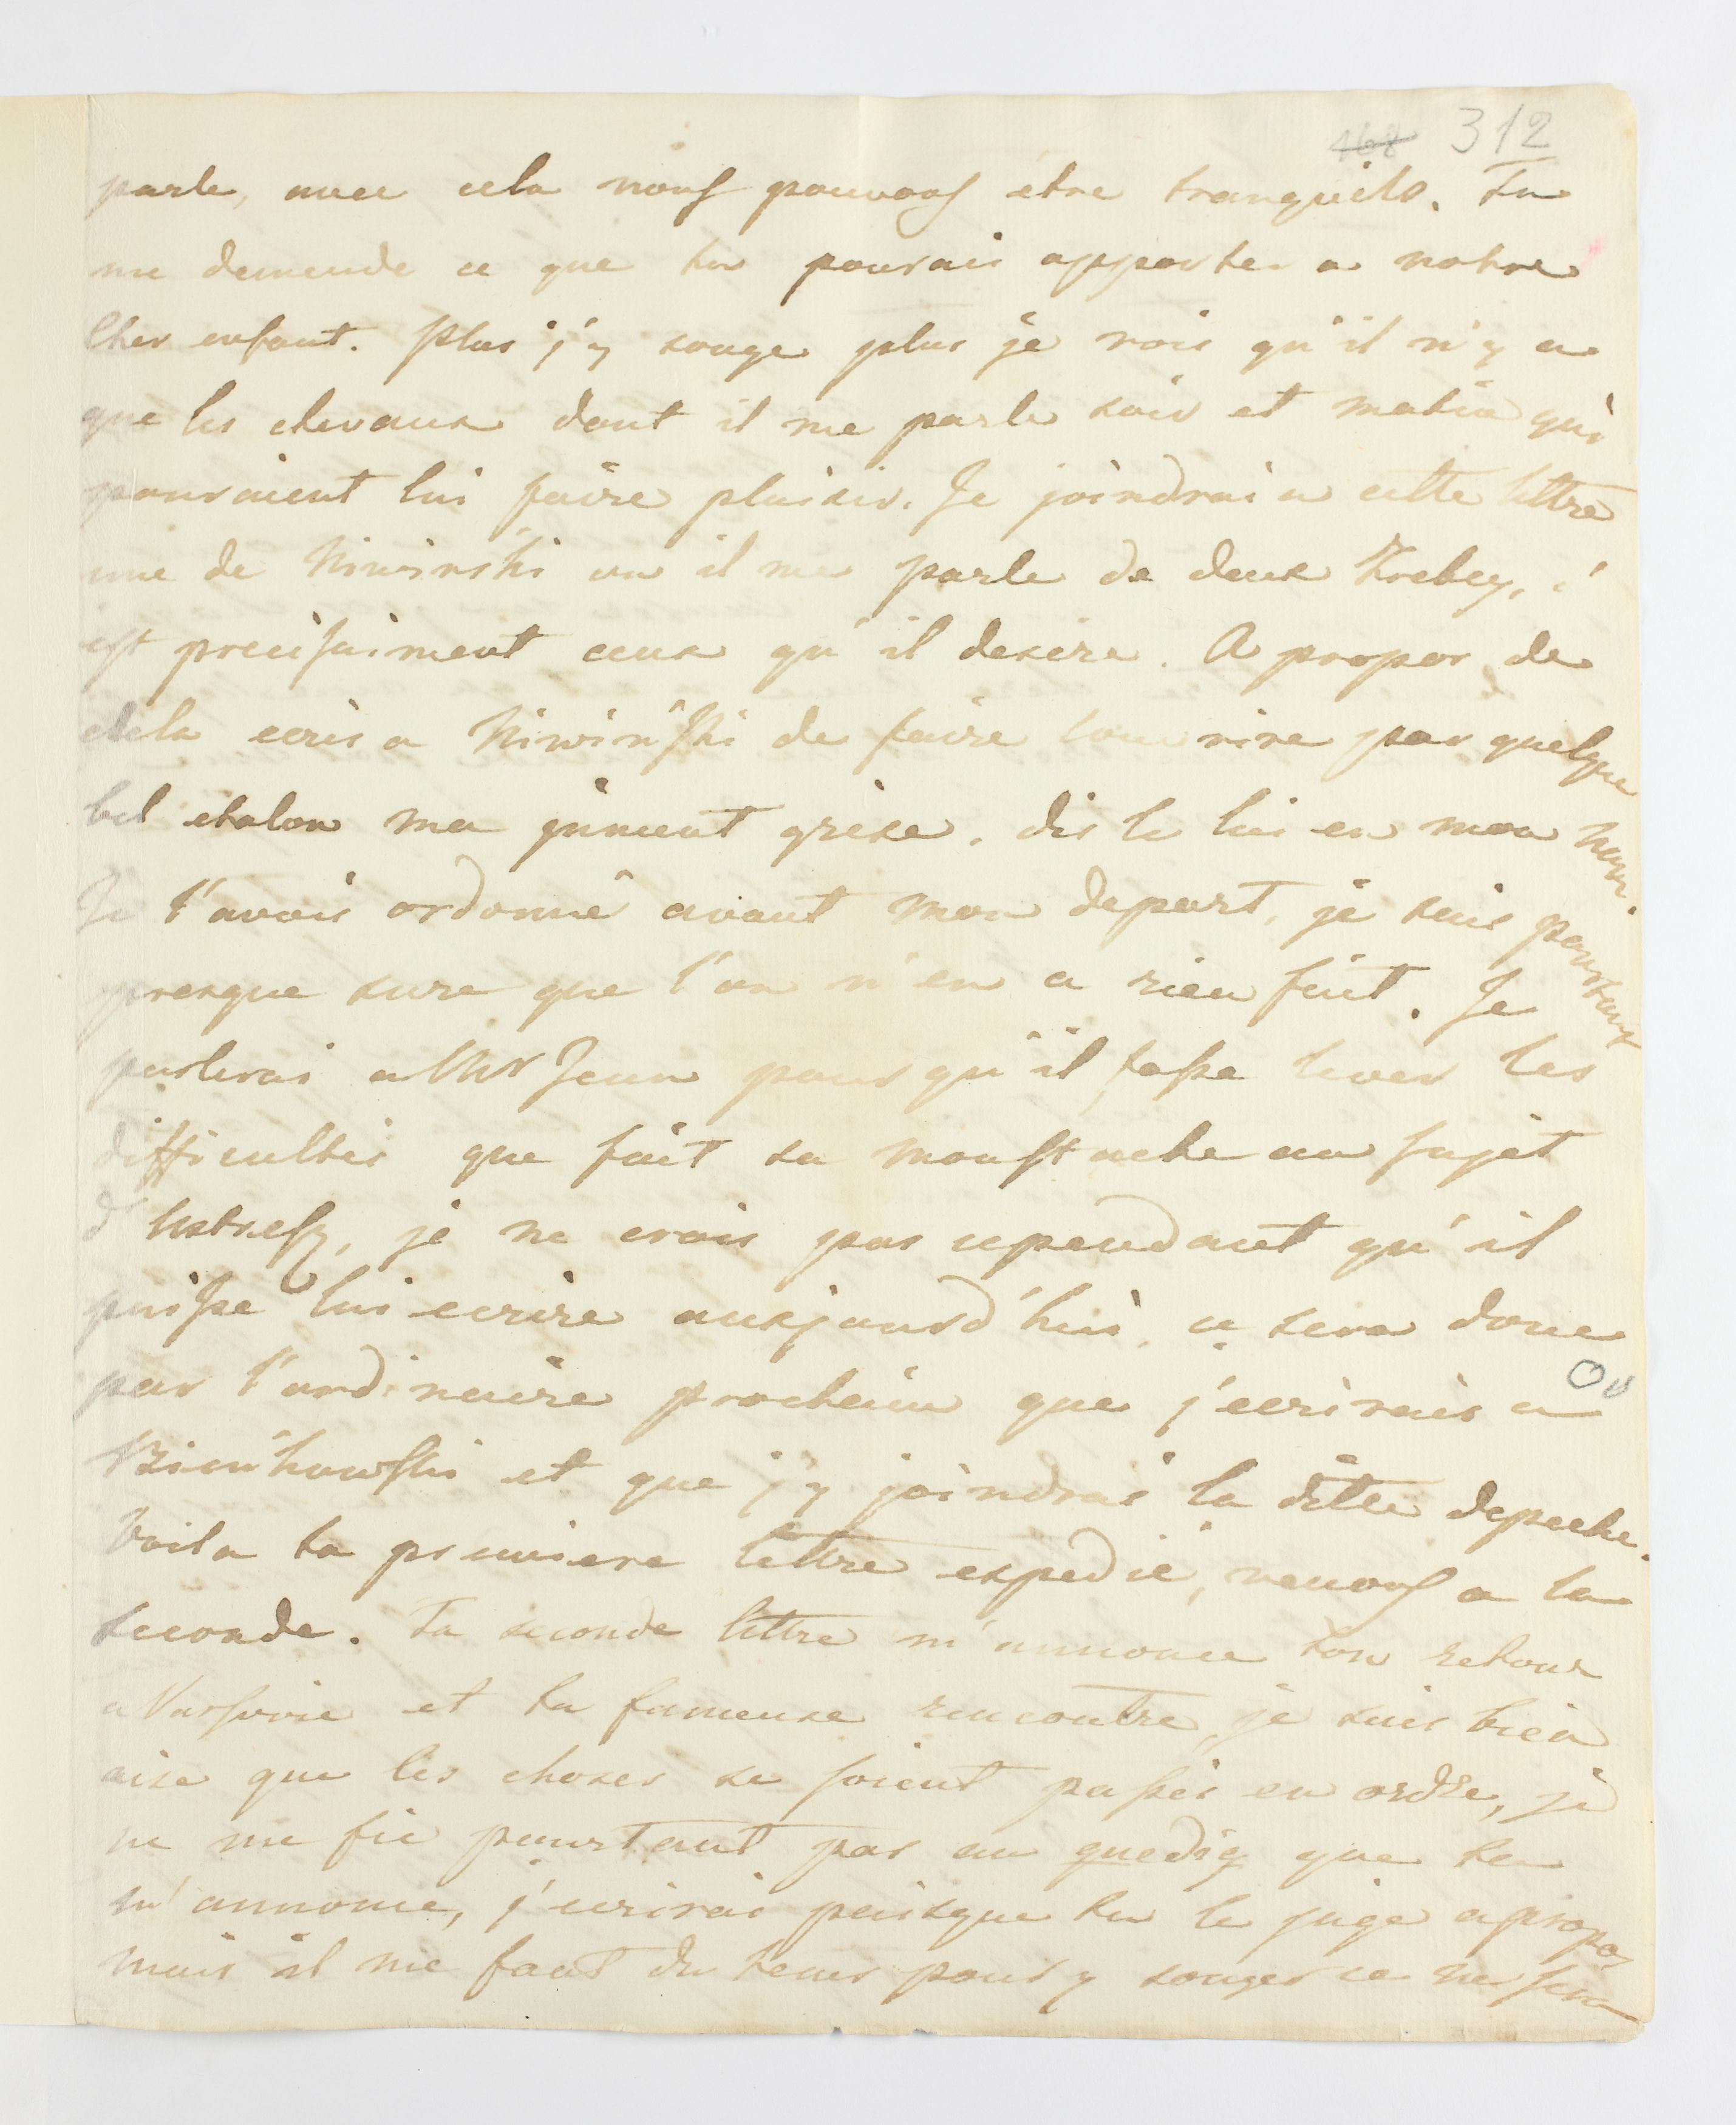 168 312
parle, avec cela nous pouvons être tranquils. Tu
me demende ce que tu pourais apporter a notre
Cher enfant. Plus j'y songe plus je vois qu'il n'y a
que les chevaux dont il me parle soir et matin qui
pouraient lui faire plaisir. Je joindrai a cette lettre
une de Niwinski ou il me parle de deux Zrebcy, c'
est precisaiment ceux qu'il desire. A propos de
cela ecris a Niwiński de faire couvrire par quelque
bel etalon ma jument grise. dis le lui en mon nom.
Je l'avois ordonné avant mon depart, je suis pourtant
presque sure que l'on n'en a rien fait. Je
parlerai a Mr Jean pour qu'il fasse lever les
difficultées que fait sa moustache au sujet
d' je ne crois pas cependant qu'il
puisse lui ecrire aujourd'hui, ce sera donc
par l'ordinaire prochain que j'ecrirais a
Bieńkowski et que j'y joindrai la ditte depeche.
Voila ta premiere lettre expedié, venons a la
seconde. Ta seconde lettre m'annonce ton retour
a Varsovie et ta fameuse rencontre, je suis bien
aise que les choses se soient passés en ordre, je
ne me fie pourtant pas au que tu
m'annonce, j'ecrirai puisque tu le juge apropos
mais il me faut du tems pour y songer ce ne sera